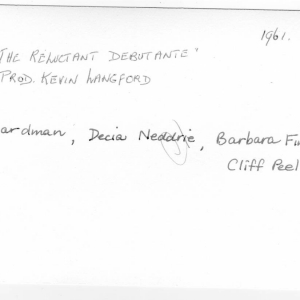 1961.
THE RELUCTANT DEBUTANTE"
PROD. KEVIN LANGFORD
ardman, Decia Neddrie, Barbara Fin
Cliff Peel